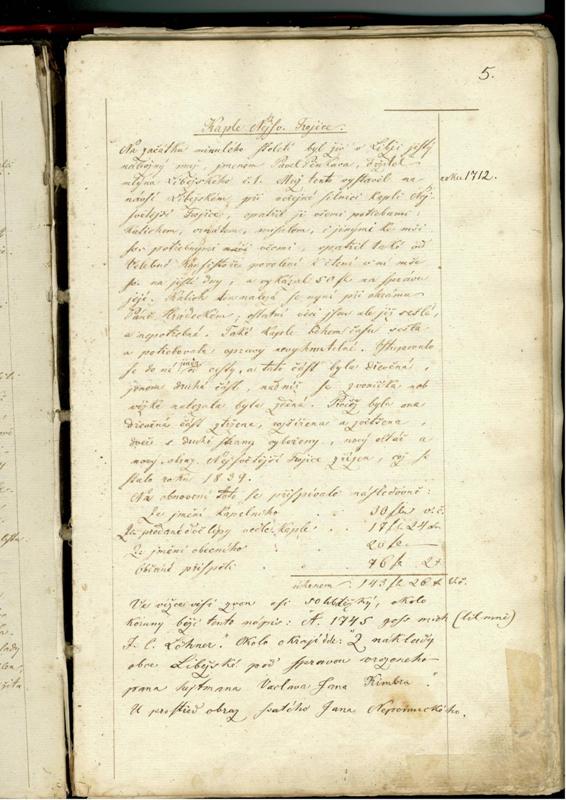 5.
Kaple Nejsv. Trojice.
Na začátku minulého století byl již v Libči jistý
nábožný muž, jménem Pavel Penkáva, držitel
mlýna Libějského č. 1. Muž tento vystavěl na
roku 1712.
návsi Libějském při veřejné silnici kapli Nej-
světější Trojice, opatřil ji všemi potřebami:
kalichem, ornátem, misálem, i jinými ke mši
sv. potřebnými věcmi, opatřil také od
Konsistoře povolení k čtení v ní mše
sv. na jisté dny, a vykázal 50 fl. na správu
její. Kalich ten nalezá se nyní při chrámu
Páně Hrádeckém, ostatní věci jsou ale již sešlé,
a nepotřebné. Také kaple během času sešla
a potřebovala opravy nevyhnutelně. Vstupovalo
se do ní od cesty, a tato část byla dřevěná,
jenom druhá část, nad níž se zvonička nad
výše nalezala byla zděná. Pročež byla ona
dřevěná část zbořena, rozšířena a zvětšena,
dveře s druhé strany vyloženy, nový oltář a
nový obraz Nejsvětější Trojice zřízen, což se
stalo roku 1839.
Na obnovení toto se přispívalo následovně:
Ze jmění kapelního . . 30 fl. v. č.
Za prodané dvě lípy vedle kaple . . 17 fl. 24
Ze jmění obecního . . 20 fl. —
Občané přispěli . 76 fl. 2 x
úhrnem: 143 fl. 26 x
Ve věžce visí zvon asi 50 liberký, okolo
koruny běží tento nápis: "A. 1745 goss mich (lil mně)
J. C. Löhner". Okolo okraje: "Z nákladu
obce Libějské pod správou
pana hejtmana Václava Jana Kimbra."
U prostřed obraz svatého Jana Nepomuckého.